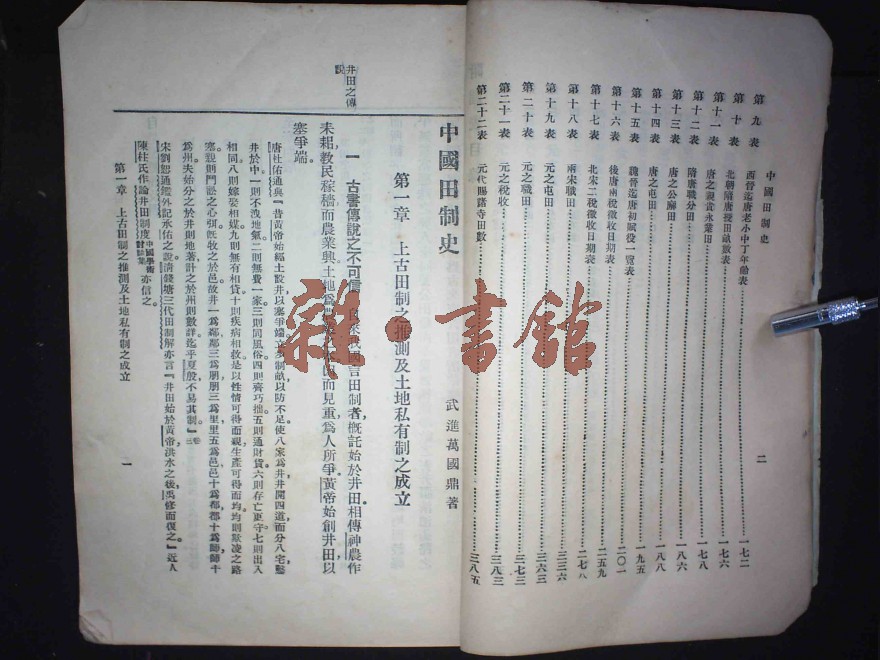 中國田制史
二
第九表 西晉迄唐老小中丁年齡表 一七二
第十表 北朝隋唐授田畝數表
第十一表 唐之親貴永業田 一七八
第十二表 隋唐職分田 一八六
第十三表 唐之公廨田 一八八
第十四表 唐之屯田 一九五
第十五表 魏晉迄唐初賦役一覽表 二〇一
第十六表 後唐兩稅徵收日期表 二五九
第十七表 北宋二稅徵收日期表 二七八
第十八表 兩宋職田 三三六
第十九表 元之屯田 三六三
第二十表 元之職田 三七三
第二十一表 元之稅收 三八三
第二十二表 元代賜諸寺田數 三八五
中國田制史
武進萬國鼎著
第一章 上古田制之推測及土地私有制之成立
井田之傳說
一 古書傳說之不可信 言田制者,概託始於井田。相傳神農作
耒耜,教民稼穡,而農業興。土地爲 而見重,爲人所爭。黃帝始創井田以
塞爭端。
唐杜佑通典『昔黃帝始經土設井,以塞爭端,立步制畝,以防不足。使八家爲井,井開四道而分八宅,鑿
井於中。一則不洩地氣,二則無費一家,三則同風俗,四則齊巧拙,五則通財貨,六則存亡更守,七則出入
相同,八則嫁娶相媒,九則無有相貸,十則疾病相救。是以性情可得而親,生產可得而均。均則欺凌之路
塞,親則鬥訟之心弭。既牧之於邑,故井一爲鄰,鄰三爲朋,朋三爲里,里五爲邑,邑十爲都,都十爲師,師十
爲州。夫始分之於井則地著,計之於州則數詳,迄乎夏殷,不易其制。』卷三
宋劉恕通鑑外記承佑之說。清錢塘三代田制解亦言『井田始於黃帝,洪水之後,禹修而復之。』近人
陳柱氏作論井田制度中國學術討論集亦信之。
第一章 上古田制之推測及土地私有制之成立
一
雜·書館